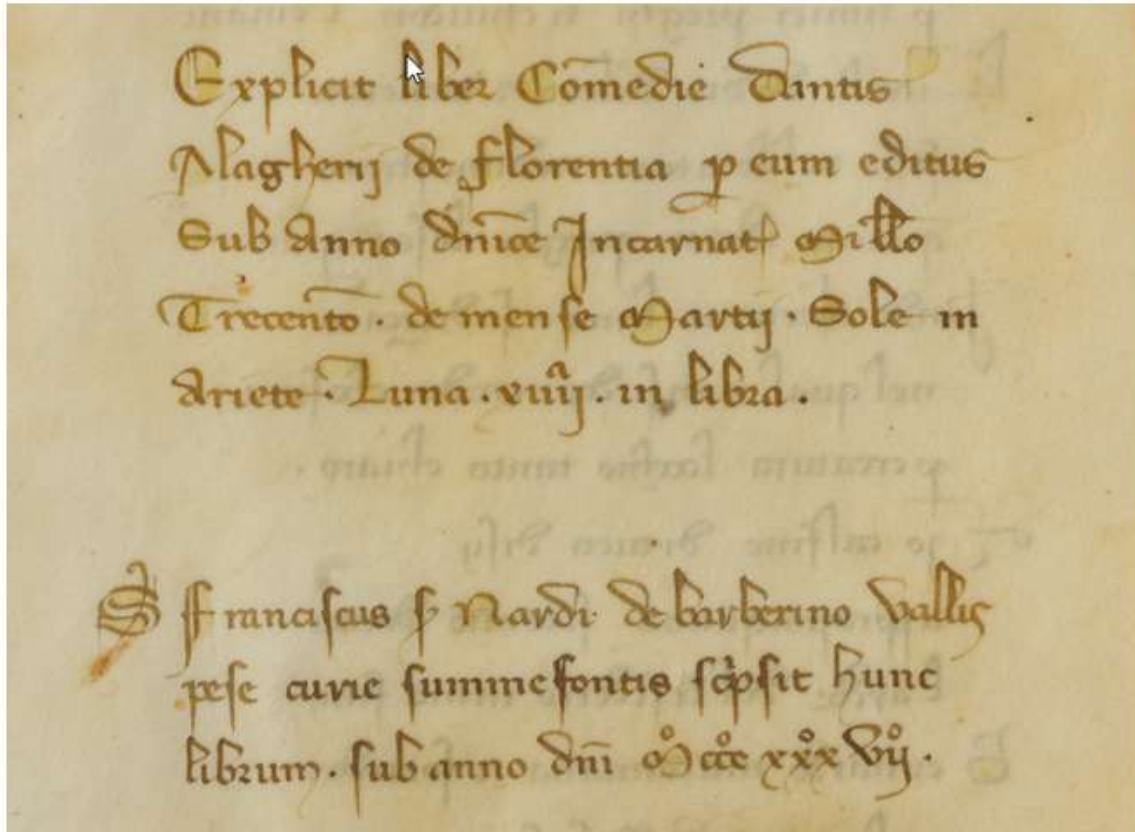 Explicit liber Com̄edie Dantis
Alagherij de florentia p eum editus
Sub Anno dn̄ice Incarnat Millo
Trecent̄o · de mense Martij · Sole in
Ariete · Luna · xuiijª · in libra ·
S̃ franciscus s̃ Nardi · de barberino vallis
pese curie summe fontis sc̍psit hunc
librum · sub anno dn̄i M̊ccc̊ xxx̊ vij̊ ·